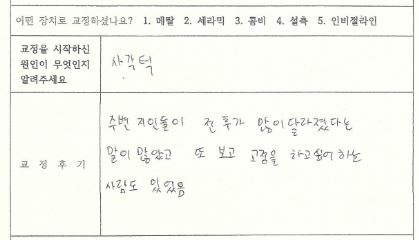 어떤 장치로 교정하셨나요? 1. 메탈 2. 세라믹 3. 콤비 4. 설측 5. 인비절라인
교정을 시작하신
원인이 무엇인지
알려주세요
사각턱
교 정 후 기
주변 지인들이 전 후가 많이 달라졌다는
말이 많았고 또 보고 교정을 하고싶어 하는
사람도 있었음